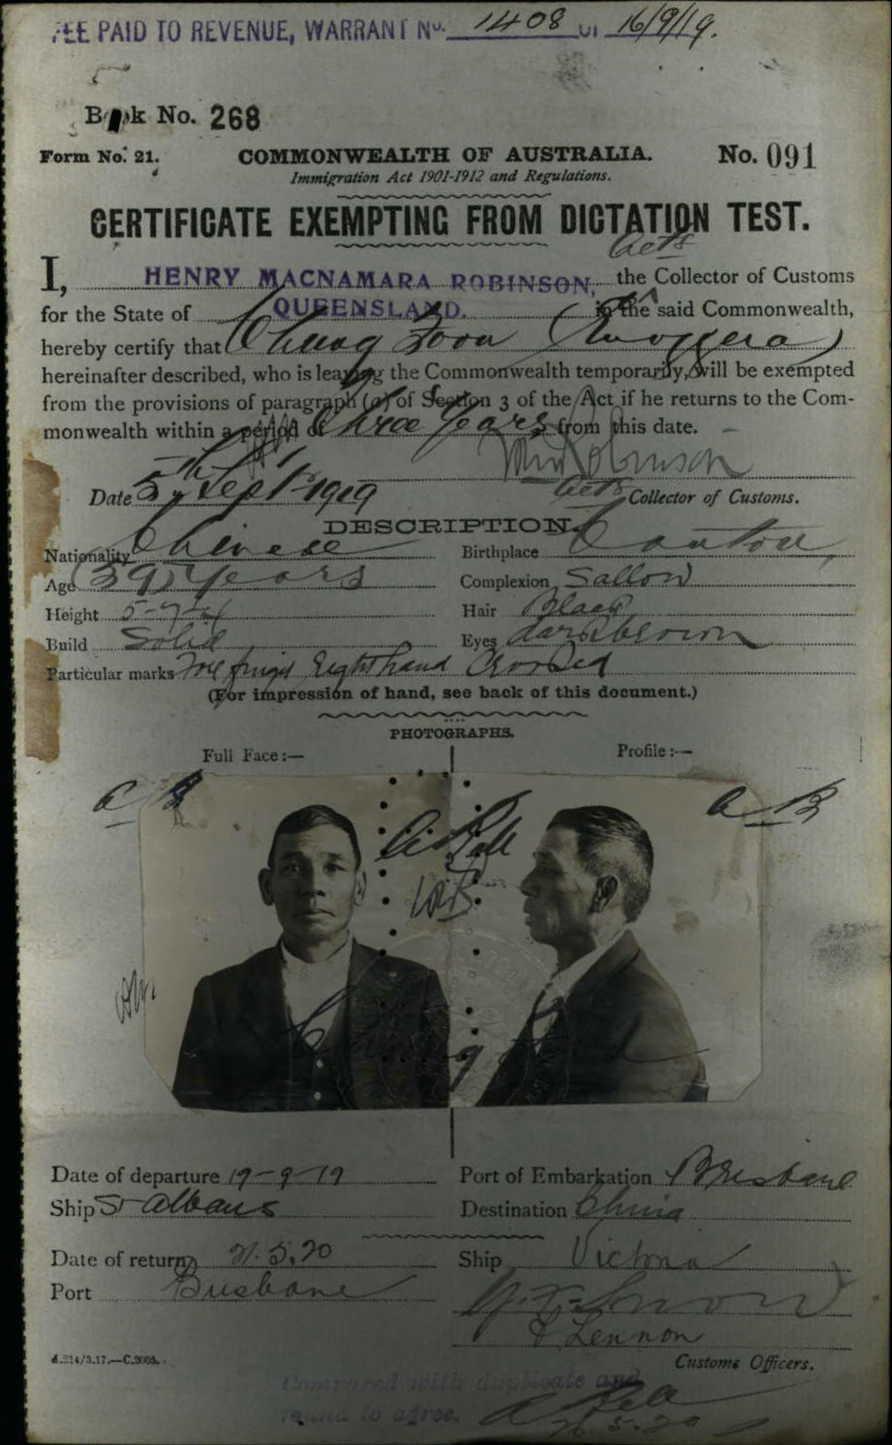 FEE PAID TO REVENUE, WARRANT No. 1408 OF 16/9/19.
Book No. 268
Form No. 21. COMMONWEALTH OF AUSTRALIA. No. 091
Immigration Act 1901-1912 and Regulations.
CERTIFICATE EXEMPTING FROM DICTATION TEST.
Actg
I, HENRY MACNAMARA ROBINSON, the Collector of Customs
for the State of QUEENSLAND. in the said Commonwealth,
hereby certify that Chung Foon (Enoggera)
hereinafter described, who is leaving the Commonwealth temporarily, will be exempted
from the provisions of paragraph (a) of Section 3 of the Act if he returns to the Com-
monwealth within a period of Three Years from this date.
HM Robinson
Date 5th Sept 1919 Actg Collector of Customs.
DESCRIPTION.
Nationality Chinese Birthplace Canton
Age (59) Years Complexion Sallow
Height 5-7¼ Hair Black
Build Solid Eyes dark brown
Particular marks Fore finger right hand Crooked
(For impression of hand, see back of this document.)
PHOTOGRAPHS.
Full Face:— Profile:—
A B A B
A Bell
Chung
Date of departure 19-9-19 Port of Embarkation Brisbane
Ship St Albans Destination China
Date of return 21.5.20 Ship Victoria
Port Brisbane
Lennon
Customs Officers.
Compared with duplicate and
found to agree. A Bell
5.20